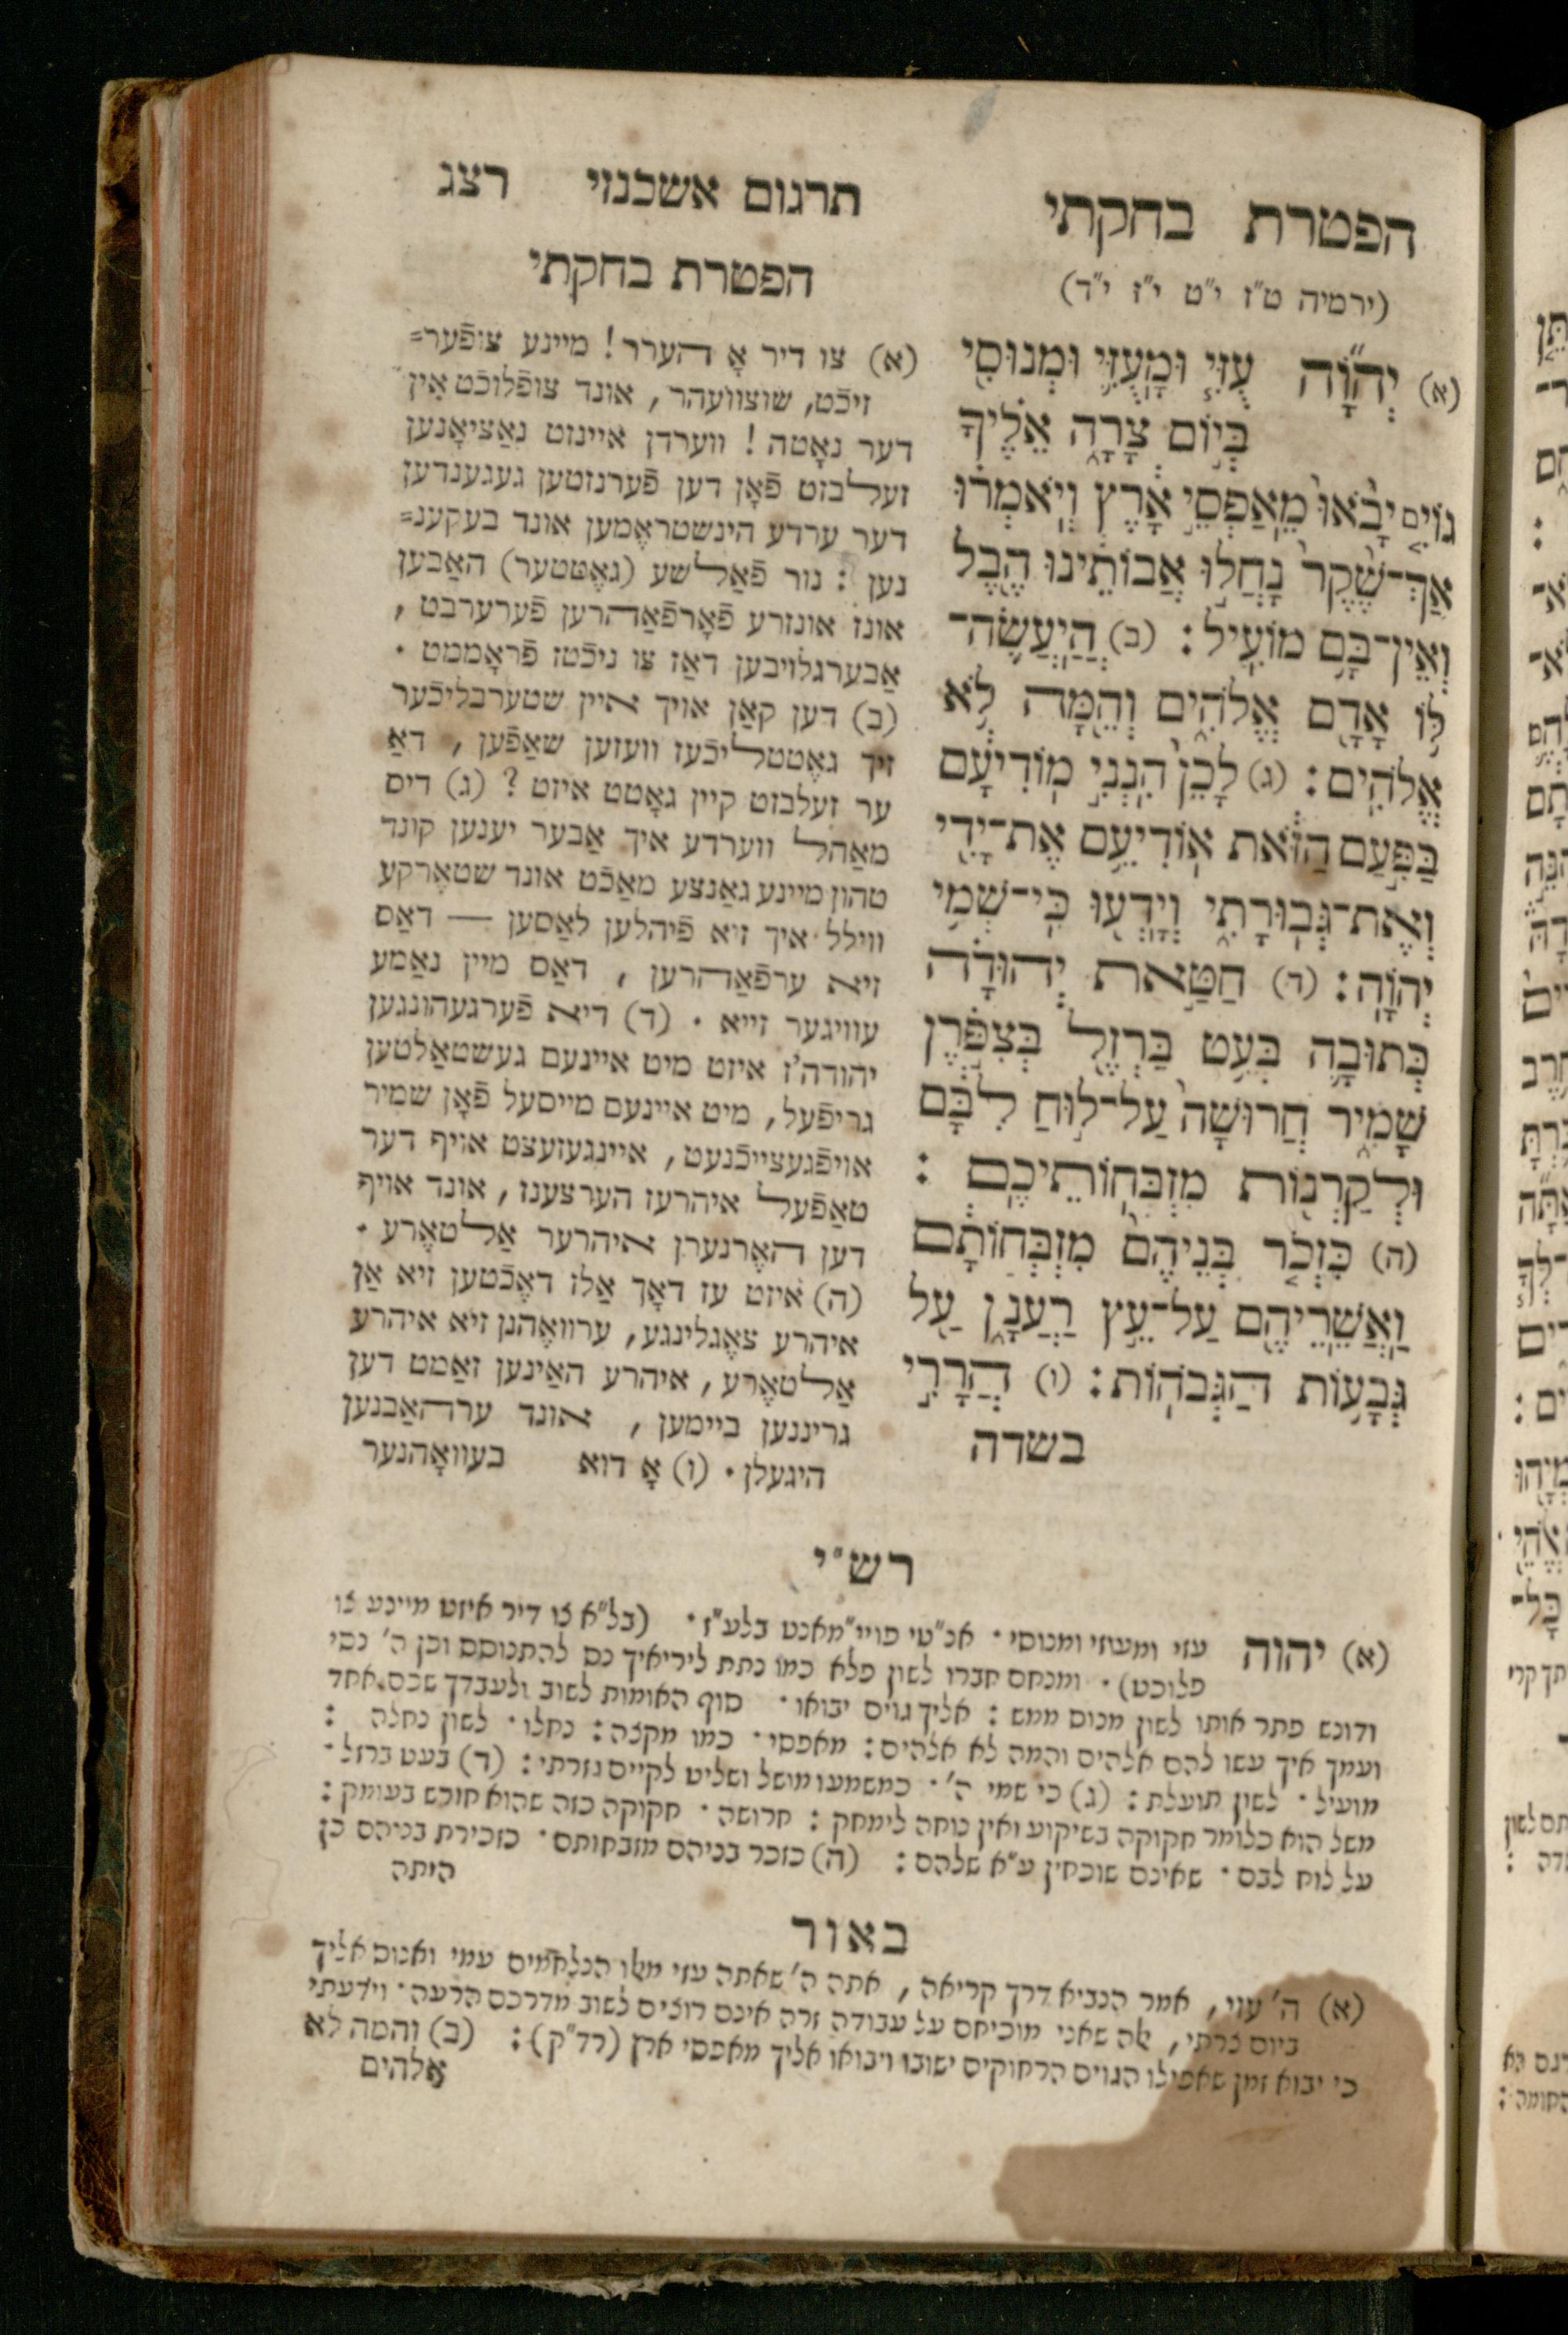 הפטרת בחקתי
(ירמיה ט"ז י"ט י"ז י"ד)
(א) יְהֹוָה עֻזִּי וּמָעֻזִּי וּמְנוּסִי
בְּיוֹם צָרָה אֵלֶיךָ
גּוֹיִם יָבֹאוּ מֵאַפְסֵי אָרֶץ וְיֹאמְרוּ
אַךְ־שֶׁקֶר נָחֲלוּ אֲבוֹתֵינוּ הֶבֶל
וְאֵין־בָּם מוֹעִיל: (ב) הֲיַעֲשֶׂה־
לּוֹ אָדָם אֱלֹהִים וְהֵמָּה לֹא
אֱלֹהִים: (ג) לָכֵן הִנְנִי מוֹדִיעָם
בַּפַּעַם הַזֹּאת אוֹדִיעֵם אֶת־יָדִי
וְאֶת־גְּבוּרָתִי וְיָדְעוּ כִּי־שְׁמִי
יְהֹוָה: (ד) חַטַּאת יְהוּדָה
כְּתוּבָה בְּעֵט בַּרְזֶל בְּצִפֹּרֶן
שָׁמִיר חֲרוּשָׁה עַל־לוּחַ לִבָּם
וּלְקַרְנוֹת מִזְבְּחוֹתֵיכֶם:
(ה) כִּזְכֹּר בְּנֵיהֶם מִזְבְּחוֹתָם
וַאֲשֵׁרֵיהֶם עַל־עֵץ רַעֲנָן עַל
גְּבָעוֹת הַגְּבֹהוֹת: (ו) הֲרָרִי
בשדה
תרגום אשכנזי רצג
הפטרת בחקתי
(א) צו דיר אָ הערר! מיינע צופֿער=
זיכֿט, שוצוועהר, אונד צופֿלוכֿט אין
דער נאָטה! ווערדן איינזט נאַציאָנען
זעלבזט פֿאָן דען פֿערנזטען געגענדען
דער ערדע הינשטראֶמען אונד בעקענ=
נען: נור פֿאַלשע (גאֶטטער) האַבען
אונז אונזרע פֿאָרפֿאַהרען פֿערערבט,
אַבערגלויבען דאַז צו ניכֿטז פֿראָממט.
(ב) דען קאַן אויך איין שטערבליכֿער
זיך גאֶטטליכֿעז וועזען שאַפֿען, דאַ
ער זעלבזט קיין גאָטט איזט? (ג) דיס
מאַהל ווערדע איך אַבער יענען קונד
טהון מיינע גאַנצע מאַכֿט אונד שטאֶרקע
ווילל איך זיא פֿיהלען לאַסען — דאַס
זיא ערפֿאַהרען, דאַס מיין נאַמע
עוויגער זייא. (ד) דיא פֿערגעהונגען
יהודה'ז איזט מיט איינעם געשטאַלטען
גריפֿעל, מיט איינעם מייסעל פֿאָן שמיר
אויפֿגעצייכֿנעט, איינגעזעצט אויף דער
טאַפֿעל איהרעז הערצענז, אונד אויף
דען האֶרנערן איהרער אַלטאֶרע.
(ה) איזט עז דאָך אַלז דאֶכֿטען זיא אַן
איהרע צאֶגלינגע, ערוואֶהנן זיא איהרע
אַלטאֶרע, איהרע האַינען זאַמט דען
גריננען ביימען, אונד ערהאַבנען
היגעלן. (ו) אָ דוא בעוואָהנער
רש"י
(א) יהוה עזי ומעוזי ומנוסי. אנ"טי פויי"מאנט בלע"ז. (בל"א צו דיר איזט מיינע צו
פלוכט). ומנחם חברו לשון פלא כמו נתת ליריאיך נס להתנוסס וכן ה' נסי
ודונש פתר אותו לשון מנוס ממש: אליך גוים יבואו. סוף האומות לשוב ולעבדך שכם אחד
ועמך איך עשו להם אלהים והמה לא אלהים: מאפסי. כמו מקצה: נחלו. לשון נחלה:
מועיל. לשון תועלת: (ג) כי שמי ה'. כמשמעו מושל ושליט לקיים גזרתי: (ד) בעט ברזל.
משל הוא כלומר חקוקה בשיקוע ואין נוחה לימחק: חרושה. חקוקה כזה שהוא חורש בעומק:
על לוח לבם. שאינם שוכחין ע"א שלהם: (ה) כזכר בניהם מזבחותם. כזכירת בניהם כן
היתה
באור
(א) ה' עזי, אמר הנביא דרך קריאה, אתה ה' שאתה עזי מאלו הנלחמים עמי ואנוס אליך
ביום צרתי, אלה שאני מוכיחם על עבודה זרה אינם רוצים לשוב מדרכם הרעה. וידעתי
כי יבוא זמן שאפילו הגוים הרחוקים ישובו ויבואו אליך מאפסי ארץ (רד"ק): (ב) והמה לא
אלהים